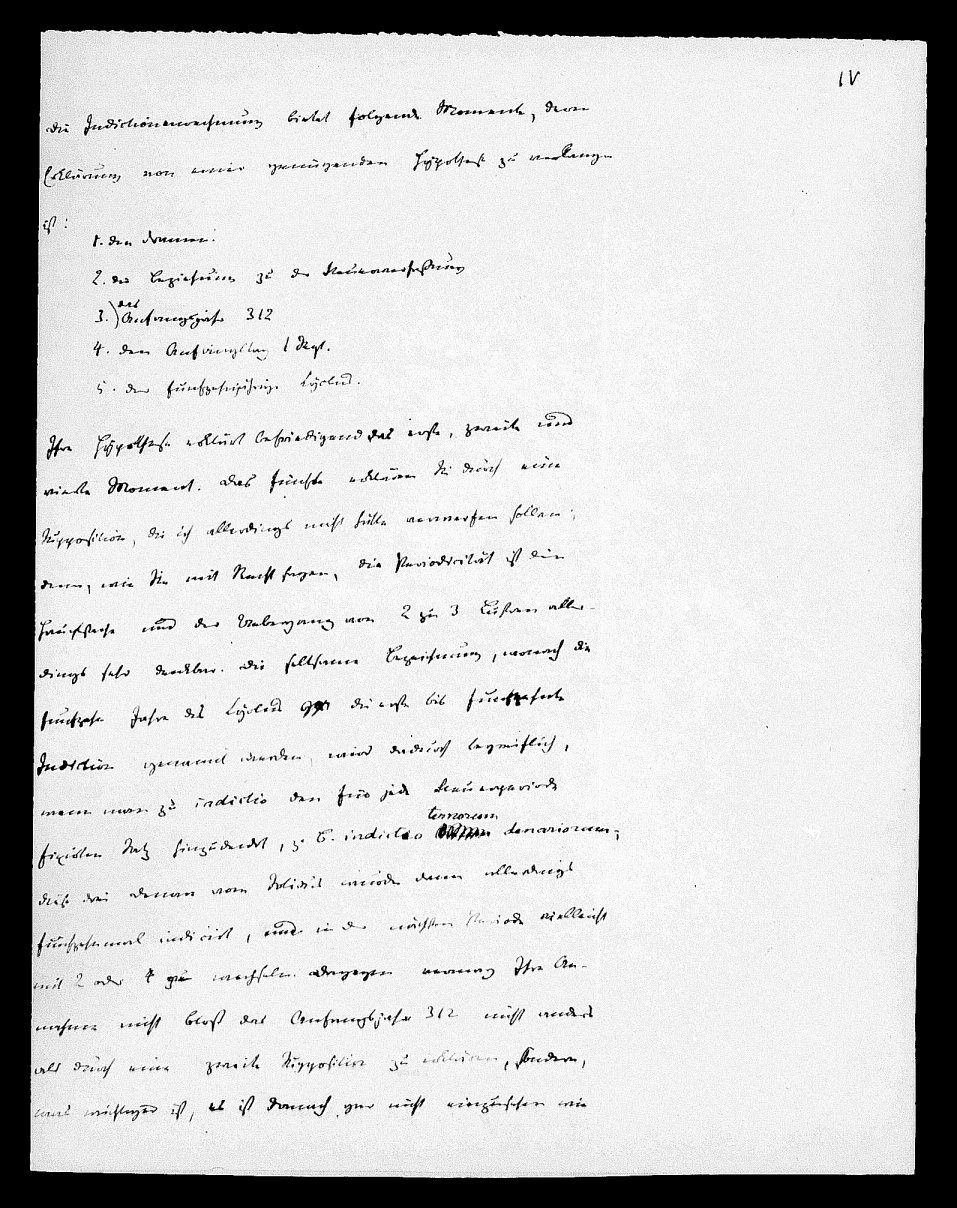 IV
Die Indictionenrechnung bietet folgende Momente, deren
Erklärung von einer genügenden Hypothese zu verlangen
ist:
1. den Namen.
2. die Beziehung zu der Steuerverfassung
3. das Anfangsjahr 312
4. den Anfangstag 1 Sept.
5. den funfzehnjährigen Cyclus.
Ihre Hypothese erklärt befriedigend das erste, zweite und
vierte Moment. Das fünfte erklären Sie durch eine
Supposition, die ich allerdings nicht hätte verwerfen sollen;
denn, wie Sie mit Recht sagen, die Periodicität ist die
Hauptsache und der Uebergang von 2 zu 3 Lustren aller-
dings sehr denkbar. Die seltsame Bezeichnung, wonach die
funfzehn Jahre des Cyclus die erste bis funfzehnte
Indiction genannt werden, wird dadurch begreiflich,
wenn man zu indictio den für jede Steuerperiode
fixirten Satz hinzudenkt, z. B. indictio ternorum denariorum;
diese drei Denare vom Solidus wurden dann allerdings
funfzehnmal indicirt, und in der nächsten Periode vielleicht
mit 2 oder 4 gewechselt. Dagegen vermag Ihre An-
nahme nicht bloß das Anfangsjahr 312 nicht anders
als durch eine zweite Supposition zu erklären, sondern,
was wichtiger ist, es ist danach gar nicht einzusehen wie